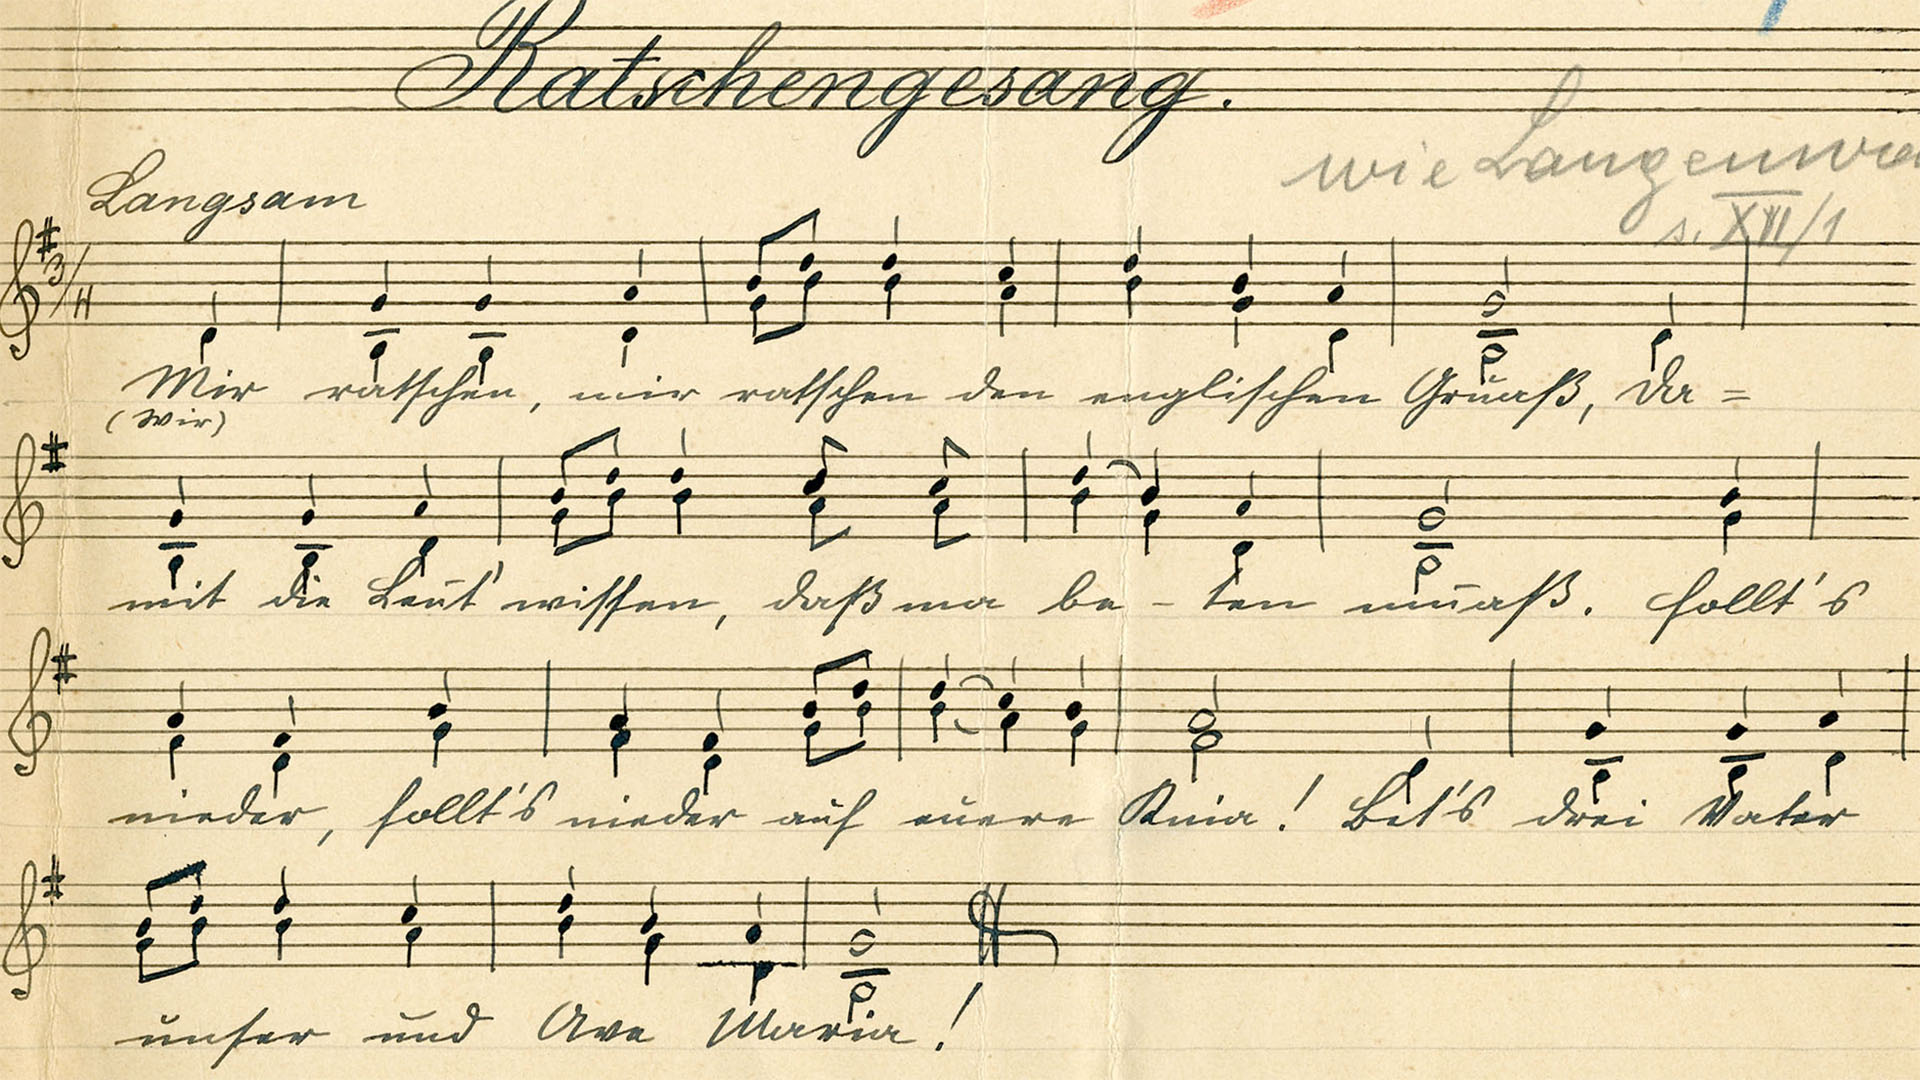 Ratschengesang.
wie Langenwa
s. XVII/1
Langsam
3/4
Mir ratschen, mir ratschen den englischen Gruaß, da =
(Wir)
mit die Leut' wissen, daß ma be - ten muaß. follt's
nieder, follt's nieder auf euere Knia! Bet's drei Vater
unser und Ave Maria!